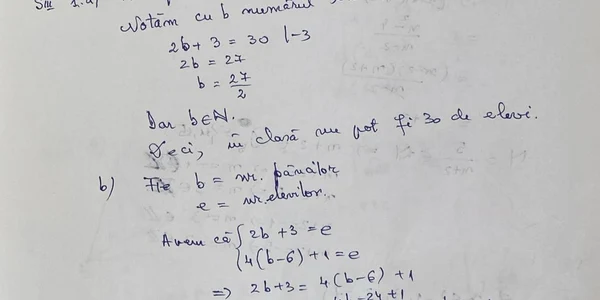 SIII 1.a)
Notăm cu b numărul
2b + 3 = 30 |-3
2b = 27
b = 27/2
Dar b∈ℕ.
Deci, în clasă nu pot fi 30 de elevi.
b) Fie b = nr. băncilor
e = nr. elevilor.
Avem că { 2b + 3 = e
{ 4(b-6) + 1 = e
=> 2b+3 = 4(b-6) + 1
4b-24+1